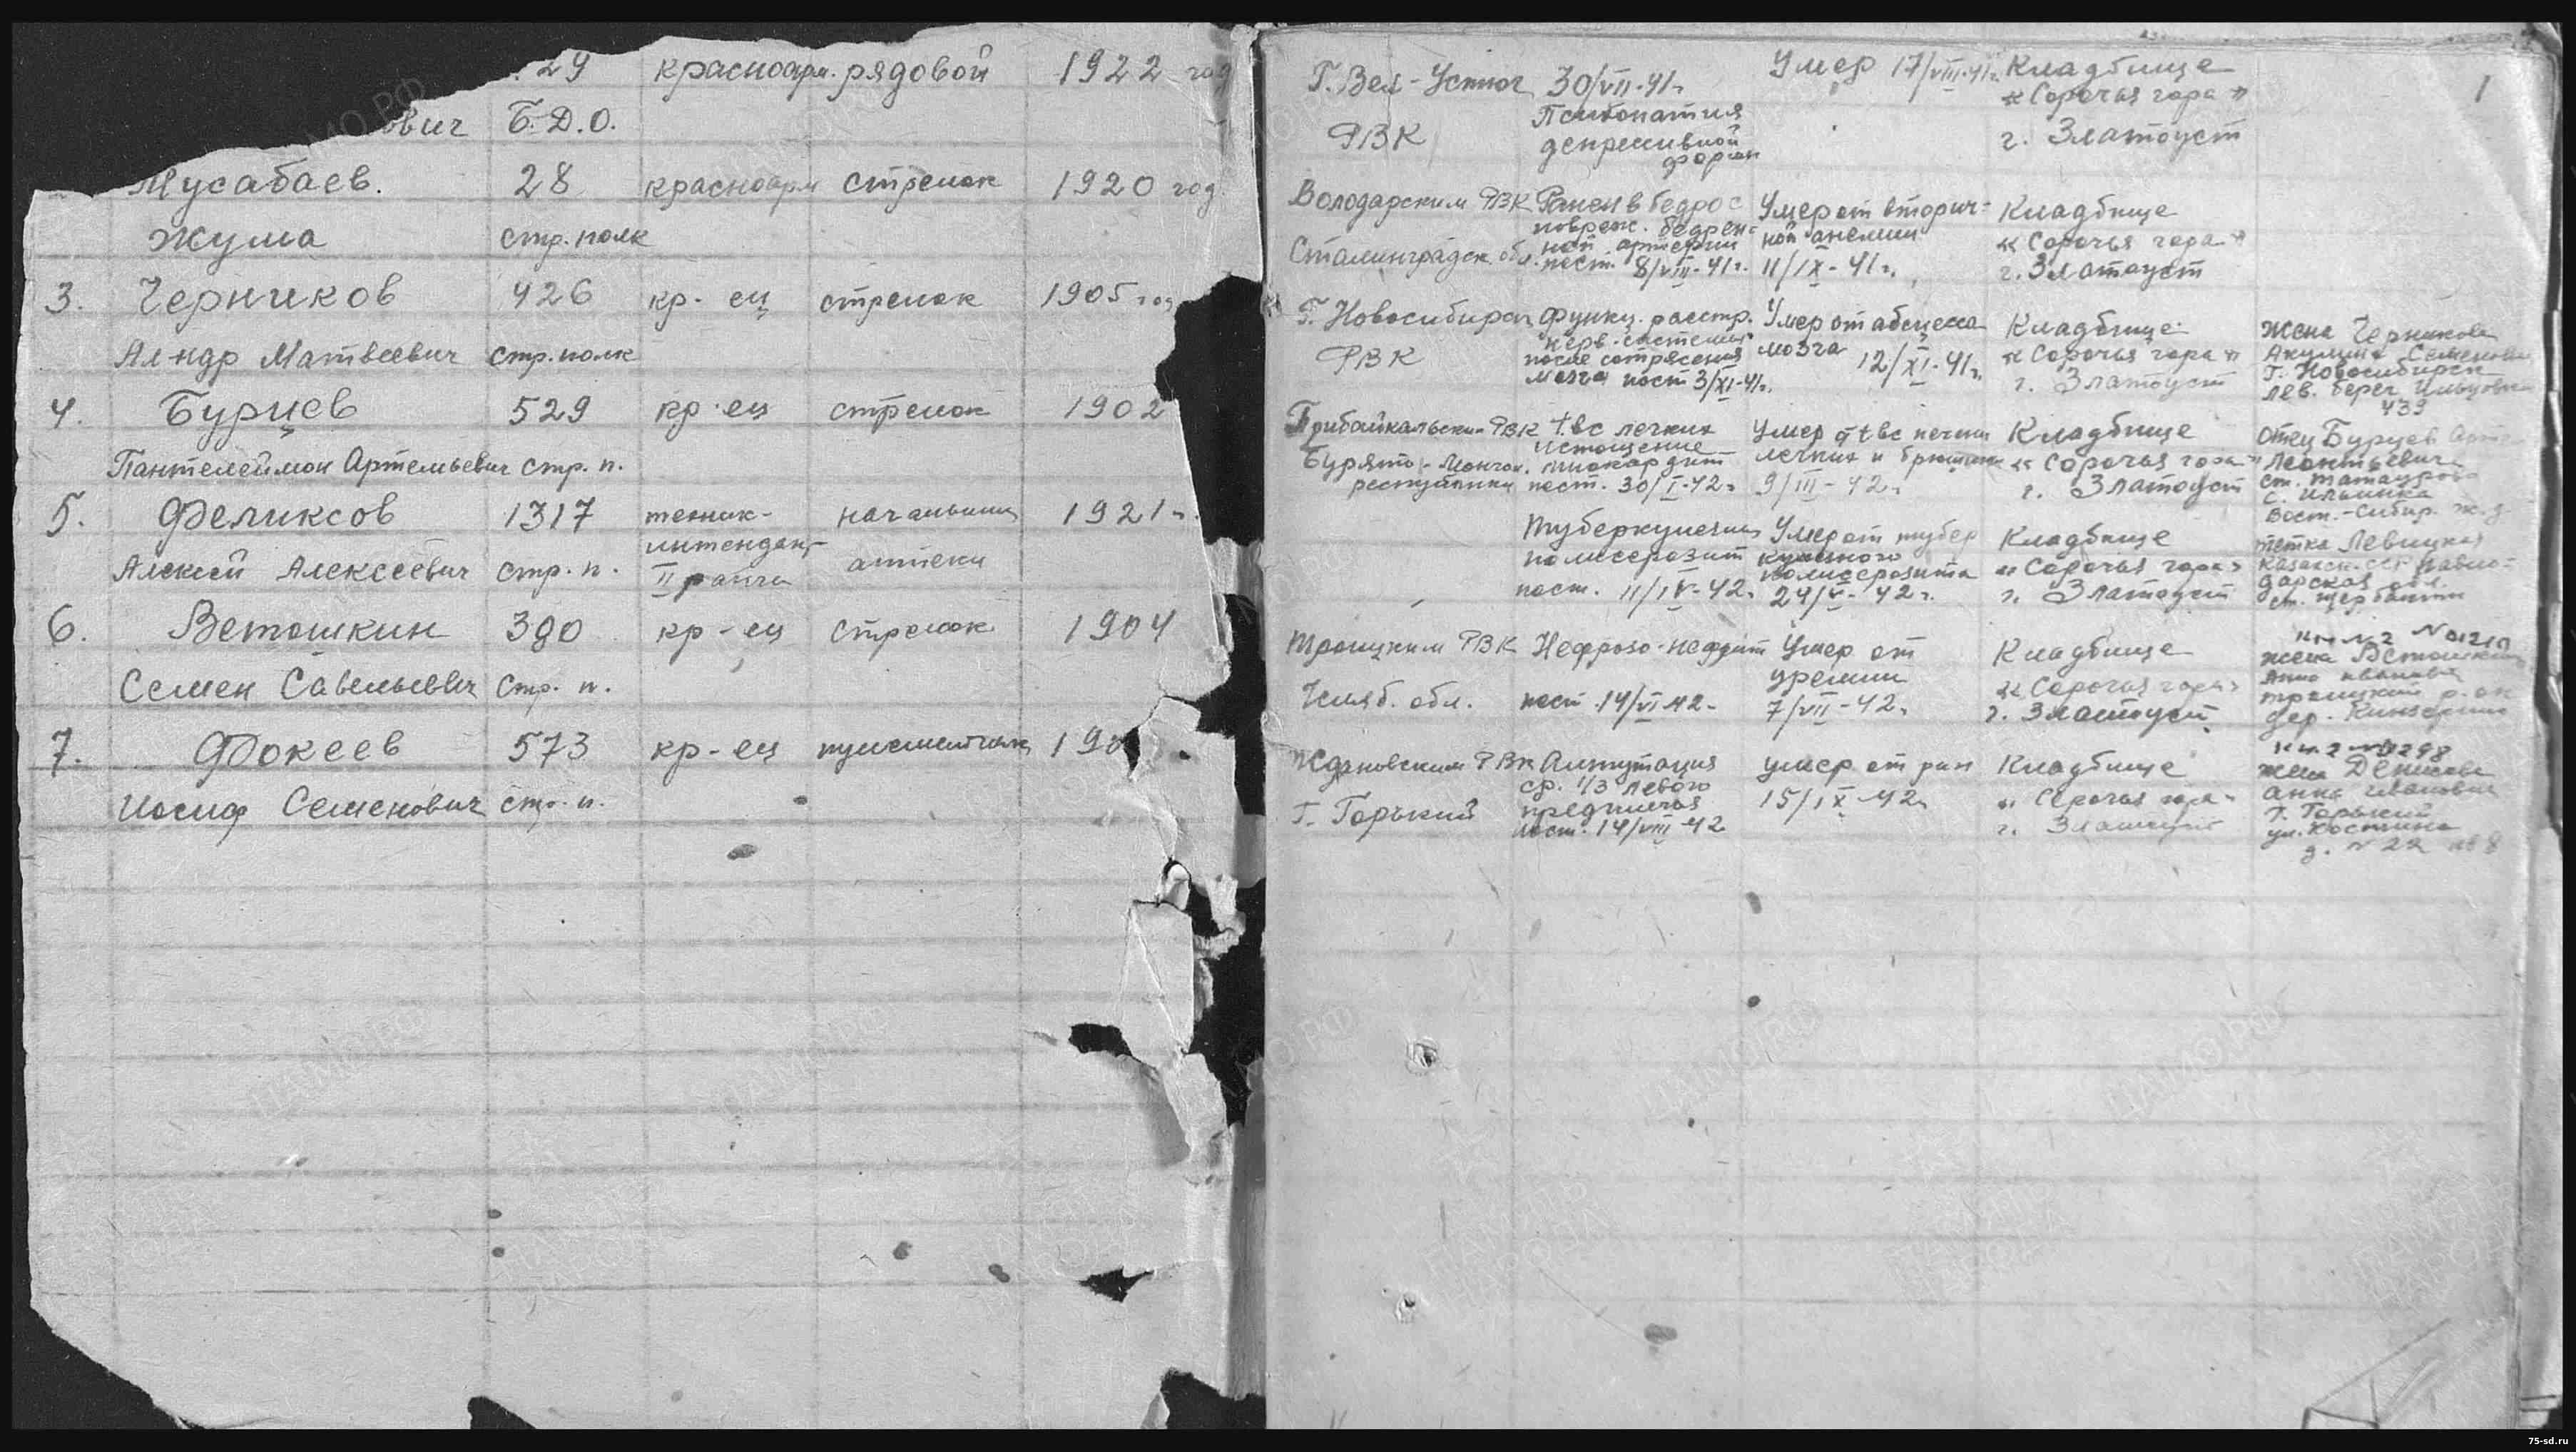 29 красноарм. рядовой 1922 год
ович Б.Д.О.
Мусабаев. 28 красноарм стрелок 1920 год
Жума стр. полк
3. Черников 426 кр-ец стрелок 1905 год
Ал-ндр Матвеевич стр. полк
4. Бурцев 529 кр-ец стрелок 1902
Пантелеймон Артемьевич стр. п.
5. Феликсов 1317 техник- начальник 1921 г.
интендант
Алексей Алексеевич стр. п. II ранга аптеки
6. Ветошкин 390 кр-ец стрелок 1904
Семен Савельевич стр. п.
7. Фокеев 573 кр-ец 190
Иосиф Семенович стр. п.
1
Г. Вел-Устюг 30/VII-41г. Умер 17/VIII-41г. Кладбище
Психопатия « Сорочья гора »
РВК депрессивной г. Златоуст
форм
Володарским РВК Ранен в бедро с Умер от вторич- Кладбище
повреж. бедрен- ной анемии « Сорочья гора »
Сталинградск. обл. ной артерии
пост. 8/VIII-41г. 11/IX-41г. г. Златоуст
Г. Новосибирск функц. расстр. Умер от абсцесса Кладбище жена Черникова
нерв. системы мозга « Сорочья гора » Акулина Семеновна
РВК после сотрясения 12/XI-41г. г. Златоуст Г. Новосибирск
мозга пост 3/XI-41г. лев. берег
439
Прибайкальским РВК tbc легких Умер от tbc Кладбище отец Бурцев
истощение легких и « Сорочья гора » Леонтьевич
Бурято-Монгол. миокардит г. Златоуст ст. Татаурово
республики пост. 30/I-42г. 9/III-42г. с. Ильинка
Вост.-Сибир. ж.д.
Туберкулезный Умер от тубер Кладбище тетка Левицкая
полисерозит кулезного « Сорочья гора »
полисерозита
пост. 11/IV-42г. 24/V-42г. г. Златоуст
Троицким РВК Нефрозо-нефрит Умер от Кладбище жена Ветошкина
уремии « Сорочья гора » Анна Ивановна
Челяб. обл. пост 14/VI-42г. 7/VII-42г. г. Златоуст Троицкий р-он
дер.
Ждановским РВК Ампутация умер от ран Кладбище жена Денисова
ср. 1/3 левого 15/IX-42г. « Сорочья гора » Анна Ивановна
Г. Горький предплечья г. Златоуст г. Горький
пост. 14/VIII-42 ул. Костина
д. № 22 кв 8
75-sd.ru